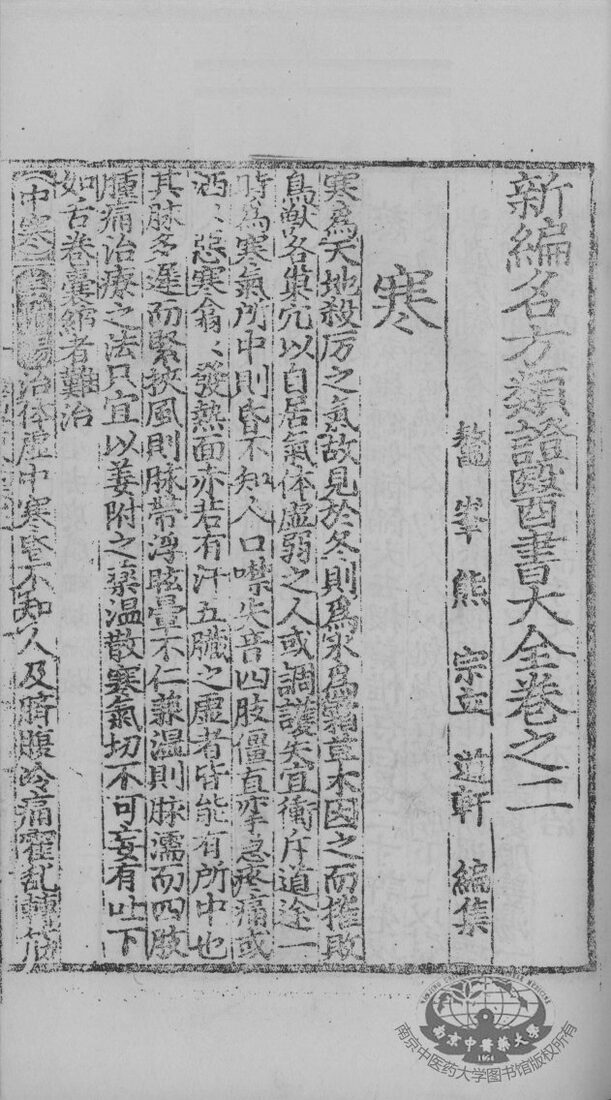 新編名方類證醫書大全卷之二
鰲峯熊宗立道軒編集
寒
寒爲天地殺厉之氣故見於冬則爲氷爲霜草木因之而摧敗
鳥獸各巢穴以自居氣体虛弱之人或調護失宜衝斥道途一
時爲寒氣所中則昏不知人口噤失音四肢僵直攣急疼痛或
洒〻惡寒翕〻發熱面赤若有汗五臟之虛者皆能有所中也
其脉多遲而緊挾風則脉帶浮眩暈不仁兼温則脉濡而四肢
腫痛治療之法只宜以姜附之藥温散寒氣切不可妄有吐下
如舌卷囊縮者難治
中寒 湯治体虛中寒昏不知人及臍腹冷痛霍亂轉筋
南京中醫藥大學
1954
南京中医药大学图书馆版权所有